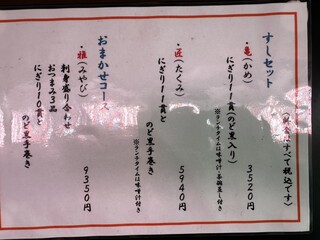 すしセット
(料金はすべて税込です)
・亀(かめ)
にぎり11貫(のど黒入り)
3520円
※ランチタイムは味噌汁・茶碗蒸し付き
・匠(たくみ)
にぎり11貫と
のど黒手巻き
5940円
※ランチタイムは味噌汁付き
おまかせコース
・雅(みやび)
9350円
刺身盛り合わせ
おつまみ3品
にぎり10貫と
のど黒手巻き